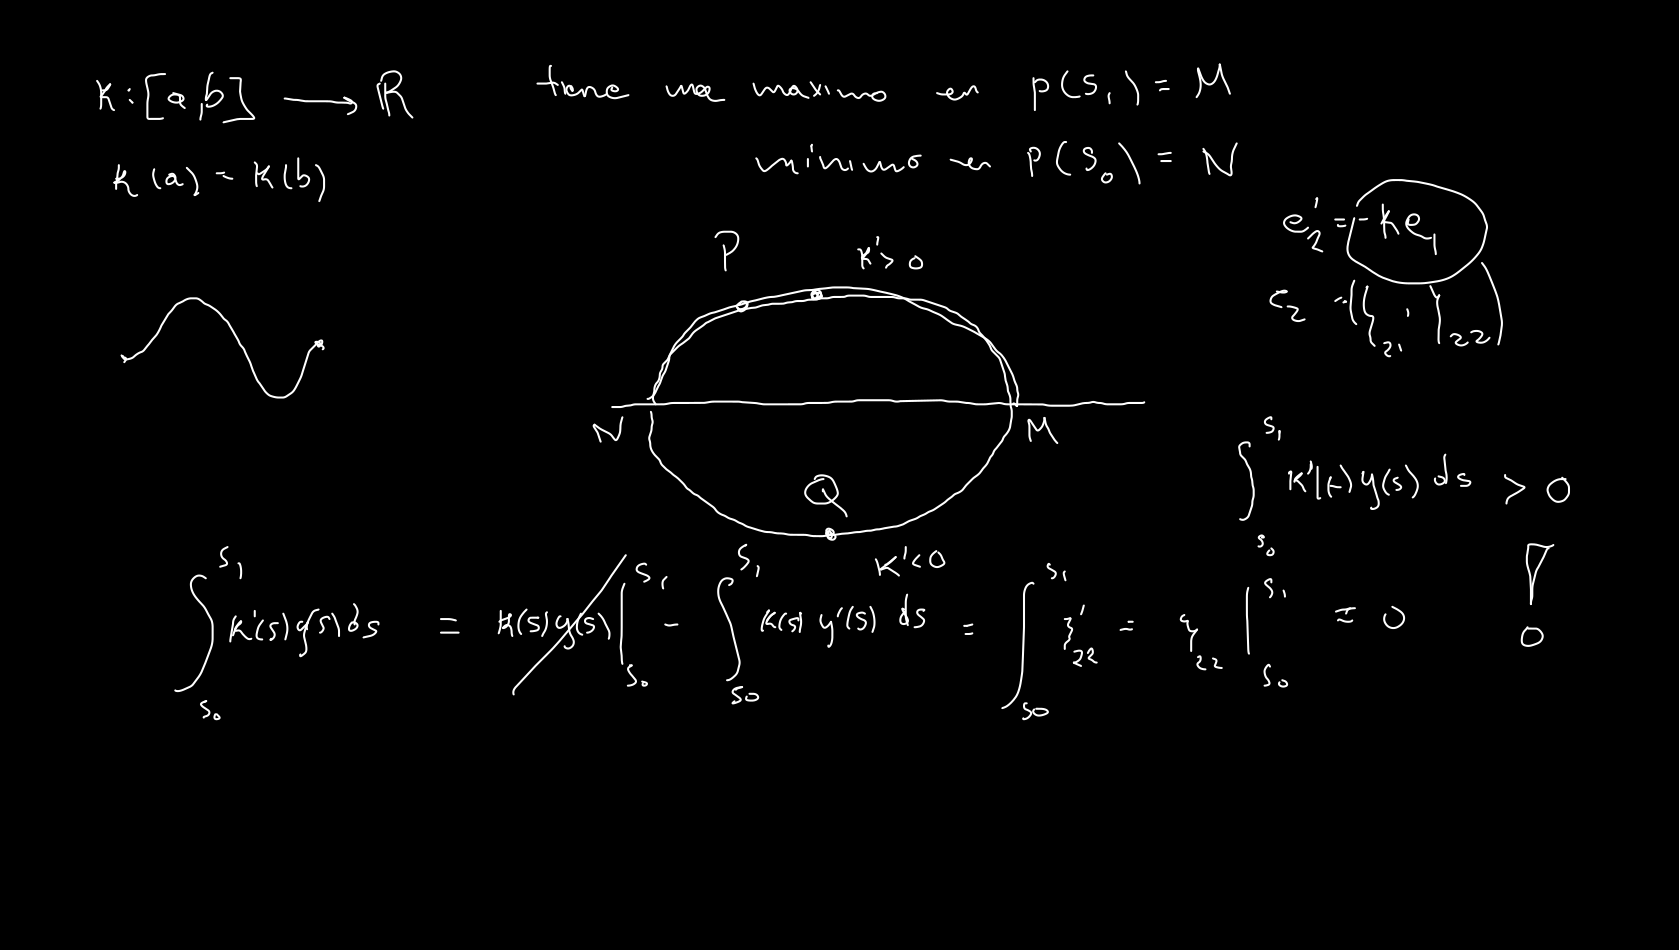 K : [a,b] ⟶ ℝ tiene max maximo en p(s₁) = M
K(a) = K(b) minimo en p(s₀) = N
e₂' = -Ke₁
P K' > 0
e₂ = (ξ₂₁, ξ₂₂)
N M
Q
∫_{s₀}^{s₁} K'(s) y(s) ds > 0
K' < 0
∫_{s₀}^{s₁} K'(s) y(s) ds = K(s) y(s) |_{s₀}^{s₁} - ∫_{s₀}^{s₁} K(s) y'(s) ds = ∫_{s₀}^{s₁} ξ'₂₂ = ξ₂₂ |_{s₀}^{s₁} = 0 !